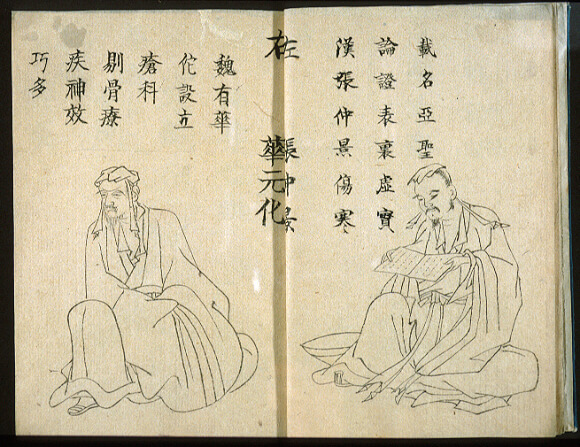 漢張仲景傷寒
論證表裏虛實
載名亞聖
張仲景
華元化
魏有華
佗設立
瘡科
剔骨療
疾神效
巧多